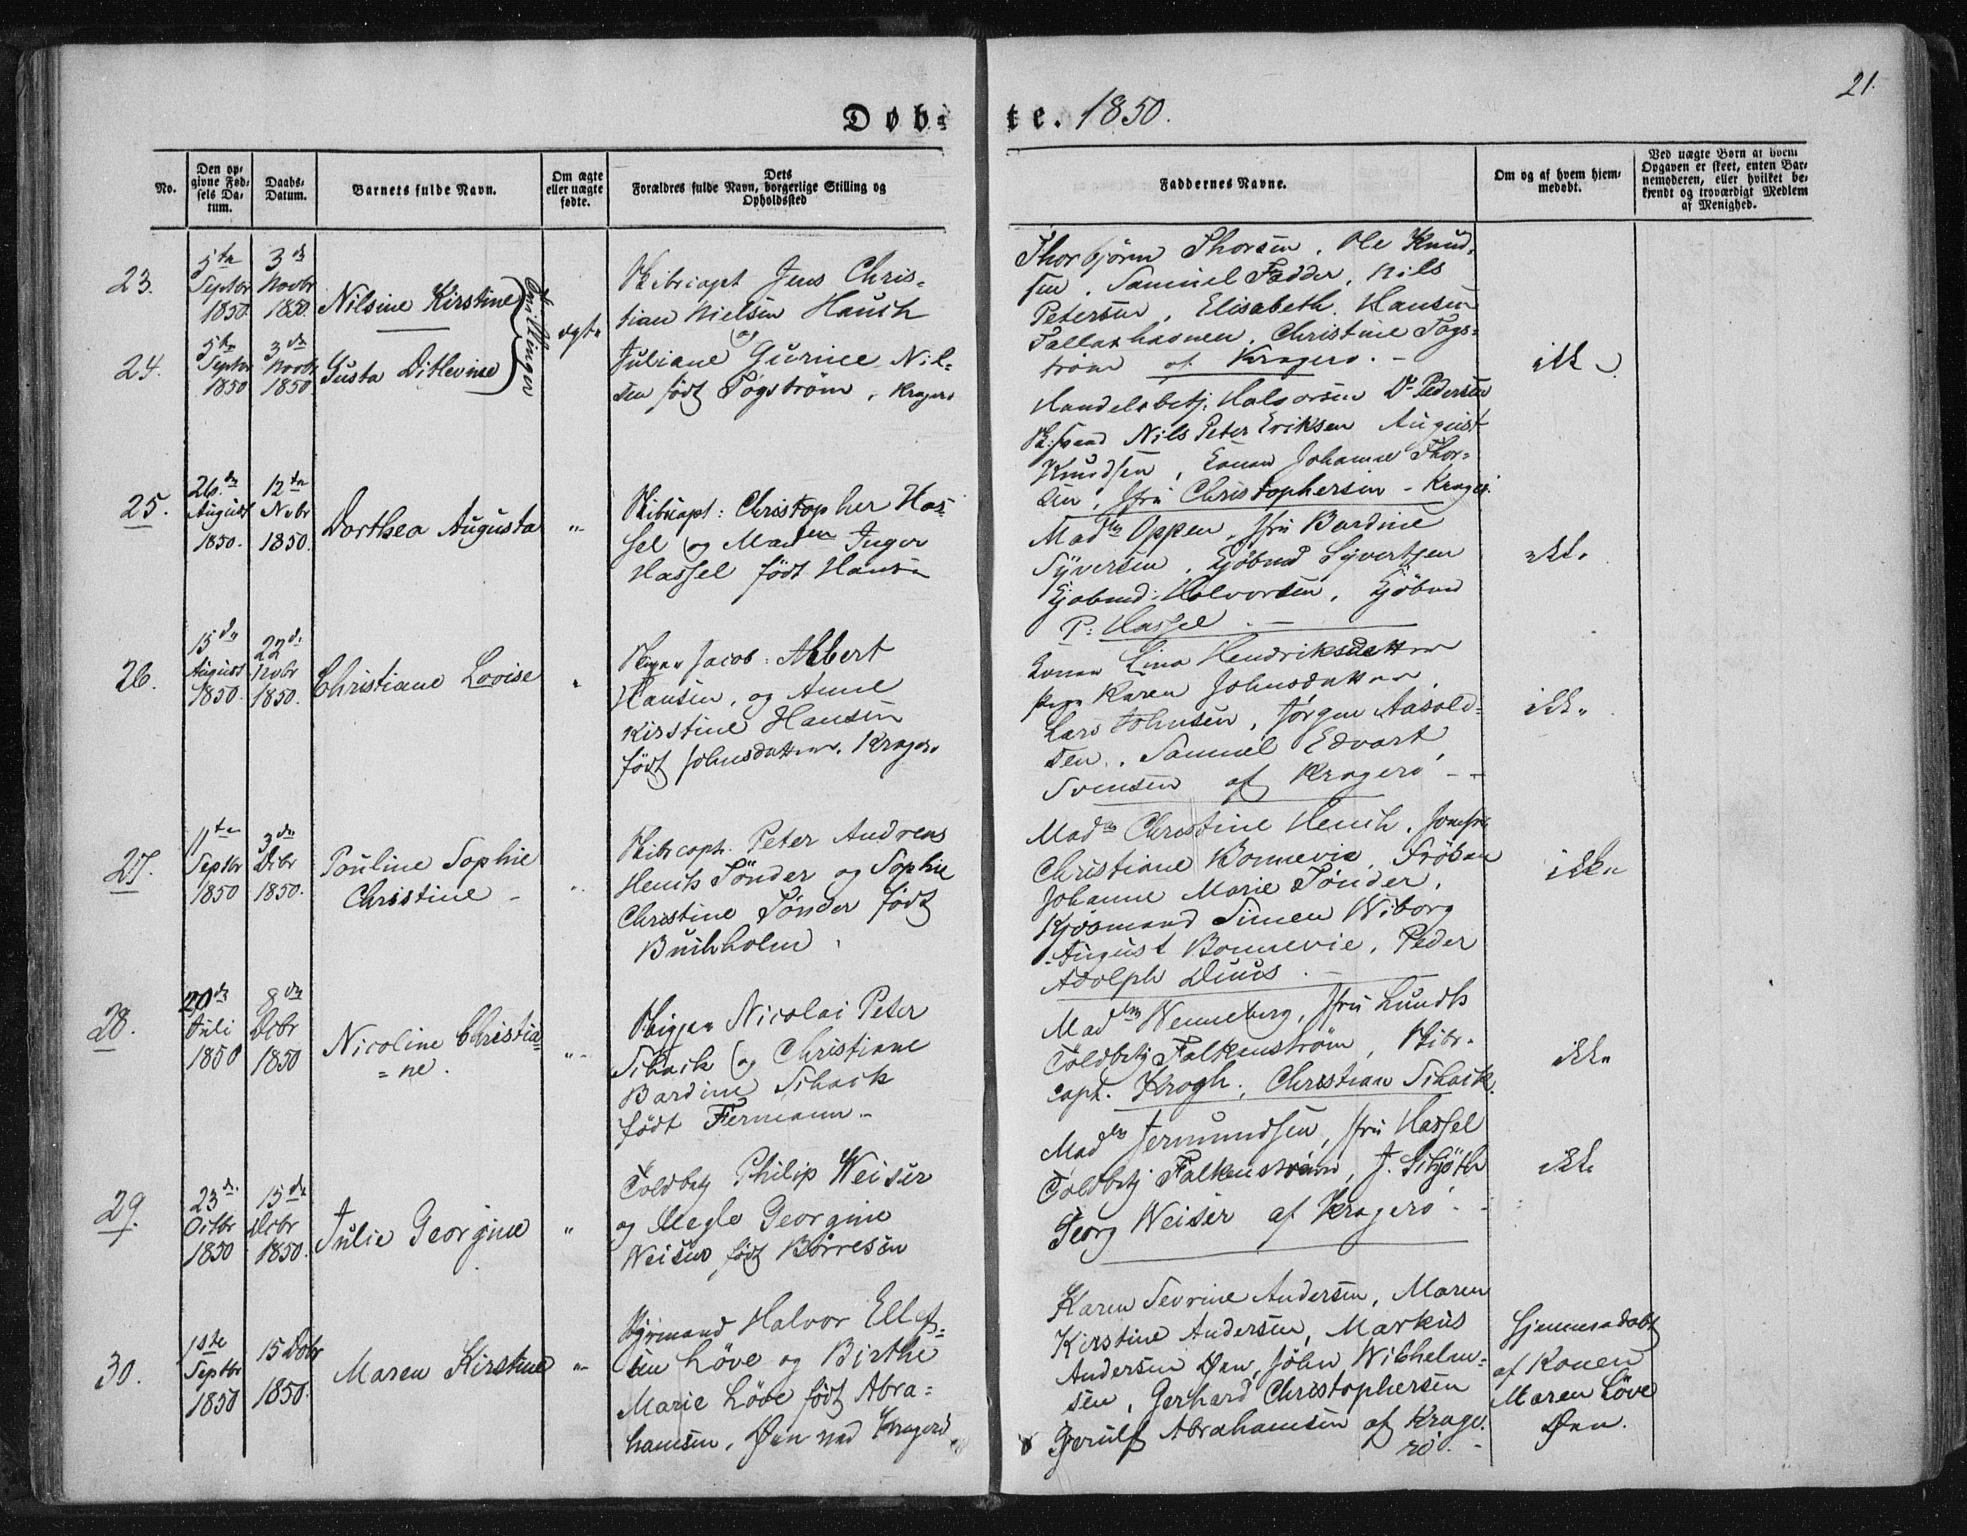 21.
Døb-
te. 1850.
No.
Den op-
givne Fød-
sels Da-
tum.
Daabs-
Datum.
Barnets fulde Navn.
Om ægte
eller uægte
fødte.
Dets
Forældres fulde Navn, borgerlige Stilling og
Opholdssted
Faddernes Navne.
Om og af hvem hjem-
medøbt.
Ved uægte Børn af hvem
Opgaven er skeet, enten Bar-
nemoderen, eller hvilket be-
kjendt og troværdigt Medlem
af Menighed.
23.
5te
Septbr
1850
3die
Novbr
1850.
Nilsine Kirstine
Tvillinger
ægte
Skibscapt Jens Chris-
tian Nielsen Hauch
og
24.
5te
Septbr
1850
3die
Novbr
1850.
Gusta Ditlevine
Juliane Gurine Nil-
sen født Togstrøm, Kragerø
Thorbjörn Thorsen, Ole Knud-
sen, Samuel Fadder, Nils
Petersen, Elisabeth Hansen
Christine Togs-
trøm af Kragerø. -
ikke
Handelsbetj. Halvorsen D. Pedersen
Nils Peter Eriksen August
Knudsen, Konen Johanne Thor-
sen, Jfru Christophersen - Kragerø.
25.
26de
August
1850.
12te
Novbr
1850.
Dorthea Augusta
"
Skibscapt: Christopher Has-
sel og Madmen Inger
Hassel født Hansen
Madm Oppen, Jfru Bardine
Syversen, Kjöbmd Syvertsen
Kjöbmd: Halvorsen, Kjöbmd
P: Hassel. -
ikke
26.
15de
August
1850.
22de
Novbr
1850.
Christiane Lovise
"
Skipper Jacob Albert
Hansen, og Anne
Kirstine Hansen
født Johnsdatter. Kragerø
Konen Lina Hendriksdatter
Pigen Karen Johnsdatter,
Lars Johnsen, Jørgen Aasold-
sen, Samuel Edvart
Svensen af Kragerö - -
ikke
27.
11te
Septbr
1850
3die
Dcbr
1850.
Pouline Sophie
Christine -
"
Skibscapt. Peter Andreas
Henik Tönder og Sophie
Christine Tönder født
Buchholm.
Madm Christine Henik, Jomfru
Christiane Bonnevie, Fröken
Johanne Marie Tönder,
Kjöbmand Simen Wiborg
August Bonnevie, Peder
Adolph Duus. -
ikke
28.
29de
Juli
1850
8de
Dcbr
1850
Nicoline Christia=
=ne.
"
Skipper Nicolai Peter
Schack og Christiane
Bardine Schack
født Fermann -
Madm Wenneberg, Jfru Lundh
Toldbetj Falkenstrøm, Skibs-
capt. Krogh, Christian Schack.
ikke
29.
23de
Octbr
1850
15de
Dcbr
1850.
Julie Georgine
"
Toldbetj Philip Weiser
og Megle Georgine
Weiser, født Børresen
Madm Jermundsen, Jfru Hassel
Toldbetj Falkenstrøm, J. Schjöth
Georg Weiser af Kragerö -
ikke
30.
1ste
Septbr
1850
15 Dcbr
1850.
Maren Kirstine
"
Styrmand Halvor Ellef-
sen Löve og Birthe
Marie Löve født Abra-
hamsen, Øen ved Kragerö
Karen Sevrine Andersen, Maren
Kirstine Andersen, Markus
Andersen Øen, John Wilhelm-
sen, Gerhard Christophersen
Gerulf Abrahamsen af Krage-
rö. -
Hjemmedøbt
af Konen
Maren Löve
Øen.